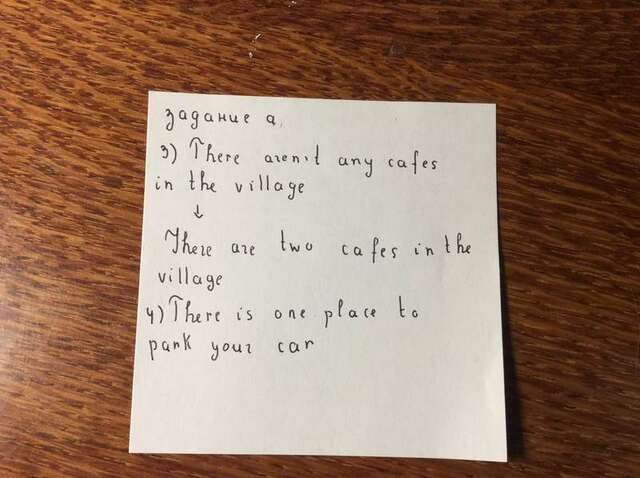 задание а,
3) There aren't any cafes
in the village
↓
There are two cafes in the
village
4) There is one place to
park your car